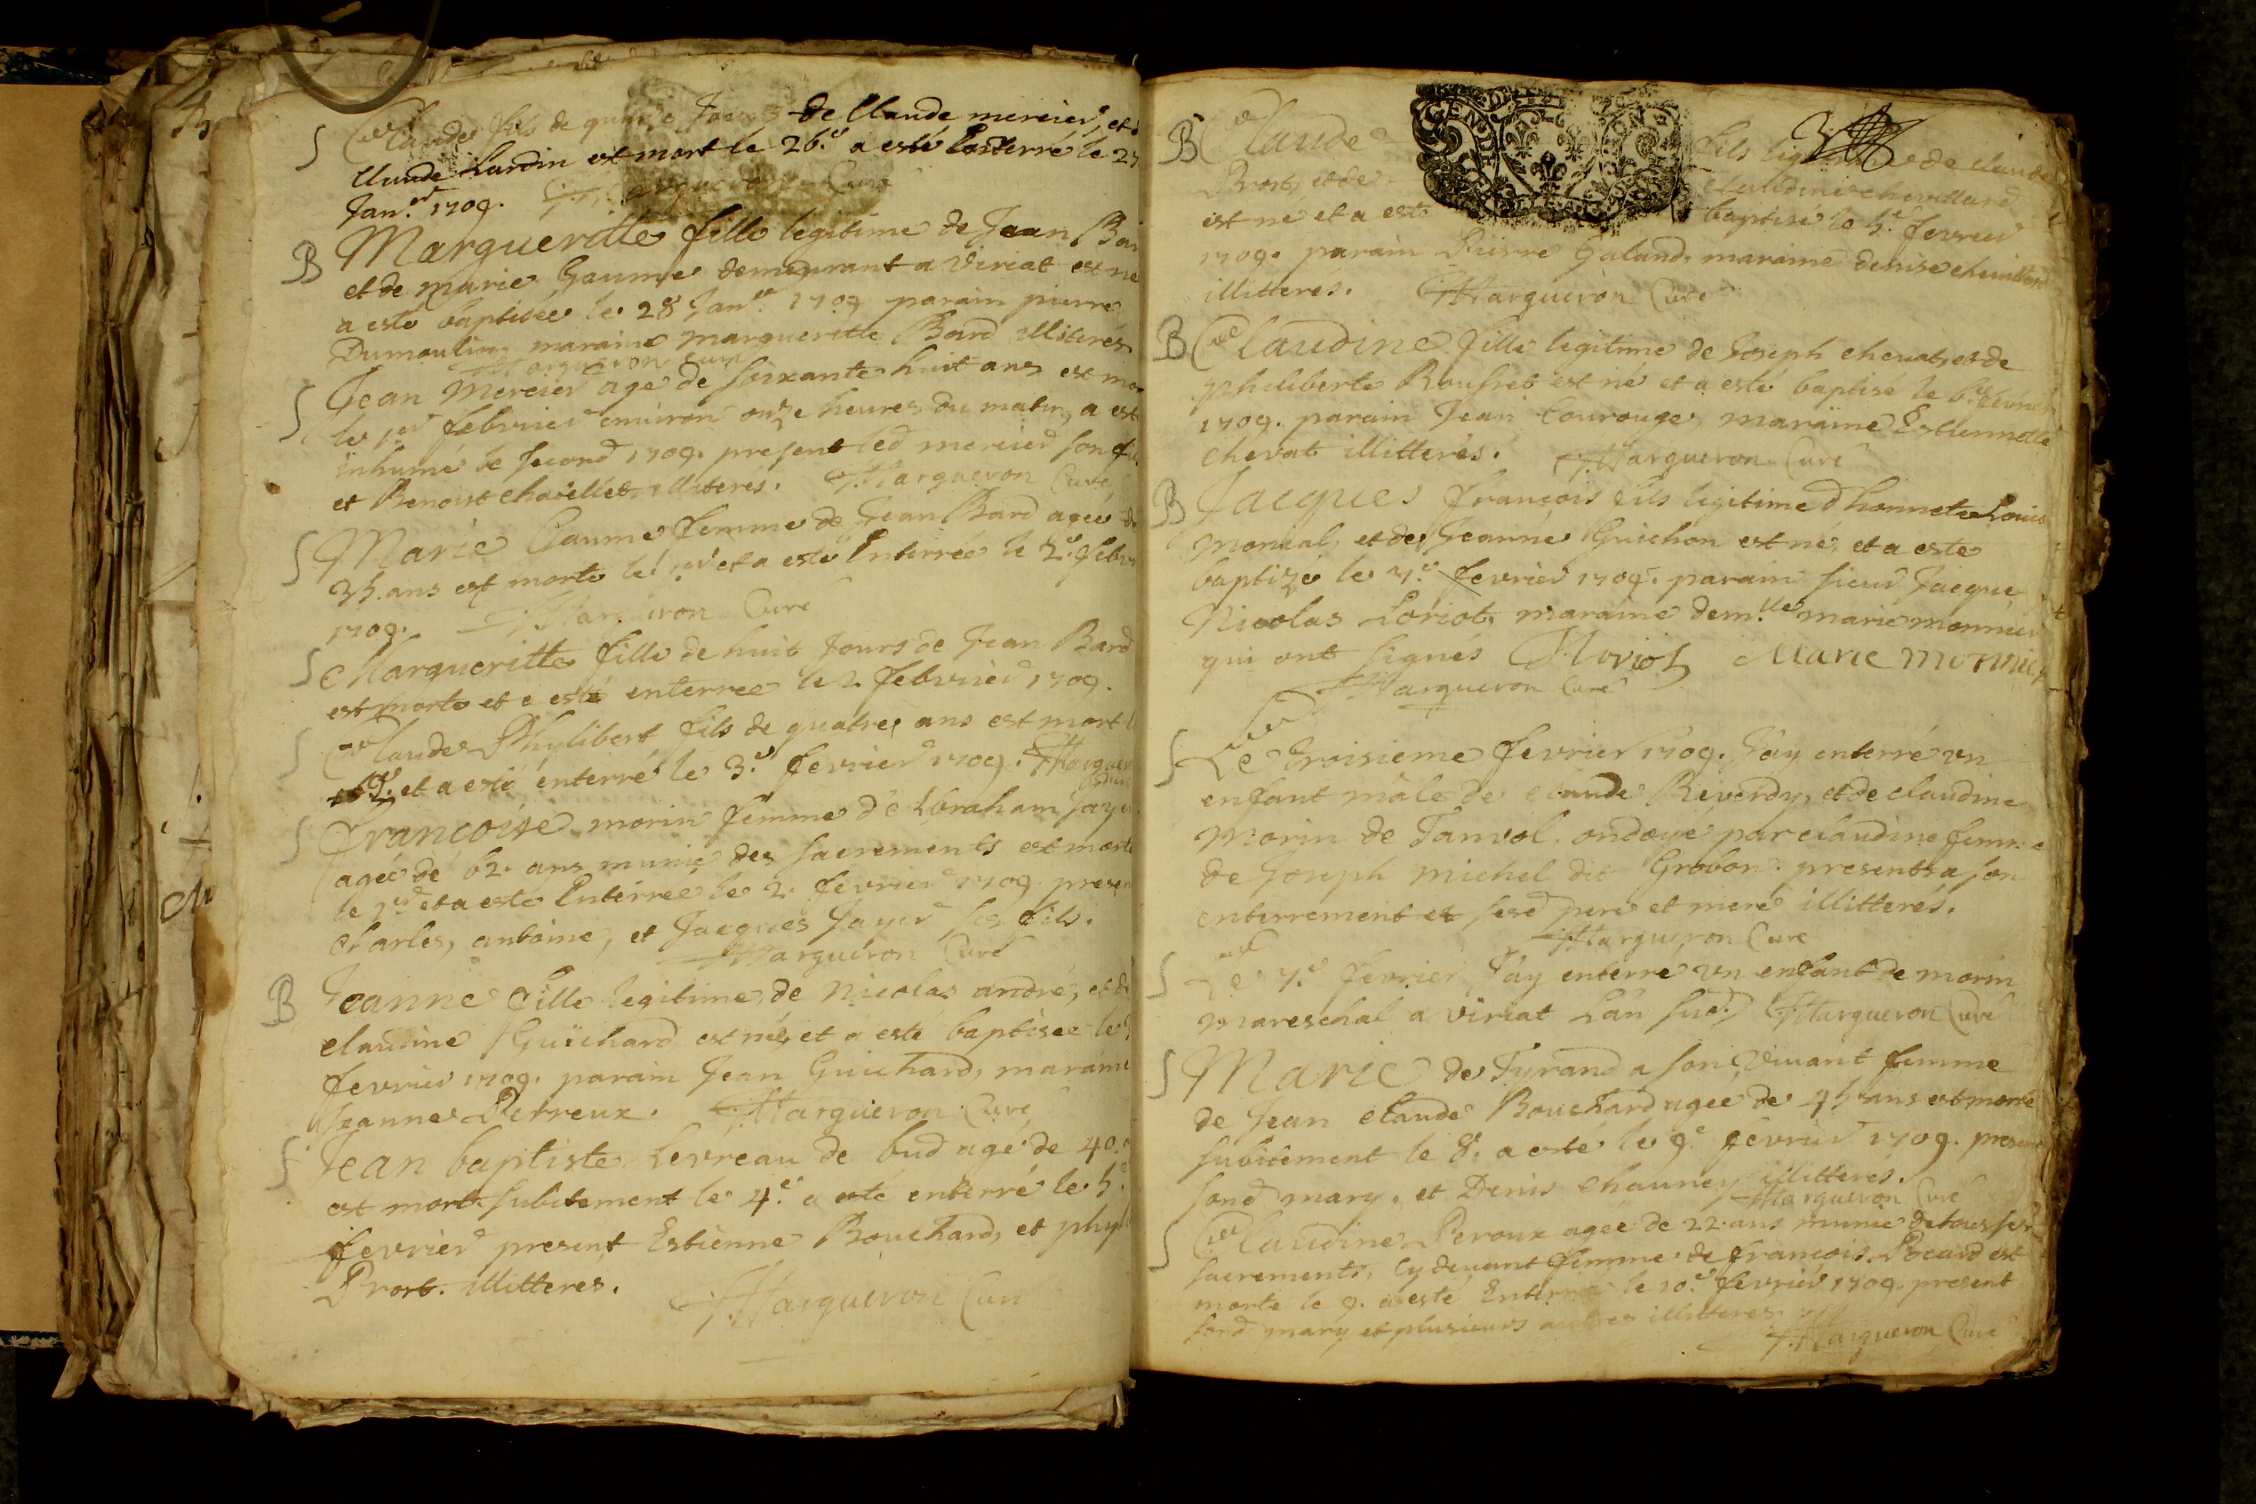 S Claude fils de Jours de Claude mercier, et
Claude Lardin est mort le 26.e a esté Enterré le 27
Jan.er 1709. Margueron Curé
B Marguerite fille legitime de Jean Bar
et de marie Gaume demeurant a Viriat est né
a esté baptisée le 28 Jan.er 1709 parain pierre
Dumoulin, maraine marguerite Bard illiterés
Margueron Curé
S Jean Mercier agé de soixante huit ans est mor
le 1er febvrier environ onze heures du matin, a est
inhumé le second 1709. present led mercier son fi
et Benoist Chaillet illiterés. Margueron Curé
S Marie Gaume femme de Jean Bard agée de
35. ans est morte le 1er et a esté Enterrée le 2.e febvr
1709. Margueron Curé
S Marguerite fille de huit Jours de Jean Bard
est morte et a esté enterree le 2 febvrier 1709.
S Claude Phylibert fils de quatre ans est mort l
et a esté enterré le 3.e fevrier 1709. Margueron
Curé
S Francoise morin femme d'Abraham Jayr
agée de 62. ans munie des sacrements est morte
le 1er et a esté Enterreé le 2. fevrier 1709. presen
Charles, antoine, et Jacques Jayr ses fils.
Margueron Curé
B Jeanne fille legitime de Nicolas andré, et d
claudine Guichard est née, et a esté baptisee le
fevrier 1709. parain Jean Guichard, maraine
Jeanne Perreux. Margueron Curé
S Jean baptiste Levreau de bud agé de 40.
est mort subitement le 4.e a esté enterré le 5.e
fevrier present Estienne Bouchard, et phyl
Prost. illitteres.
Margueron Curé
3
B Claude fils de claude
Prost, et de claudine chevillard
est né et a esté baptisé le 5.e fevrier
1709. parain Pierre Galand, maraine denise chevillard
illitterés. Margueron Curé
B Claudine fille legitime de Joseph chevat, et de
philiberte Rousset est né et a esté baptisé le 6.e fevrier
1709. parain Jean Courouge, maraine Estiennette
chevat illitterés. Margueron Curé
B Jacques francois fils legitime d honnete Louis
moneal, et de Jeanne Guichon est né, et a esté
baptizé le 7.e fevrier 1709. parain sieur Jacque
Nicolas Loriot, maraine dem.lle marie monnier
qui ont signés Noriot Marie Monnier
Margueron Curé
S Le troisieme fevrier 1709. J'ay enterré vn
enfant mâle de claude Riverdy, et de claudine
Morin de Tanvol. ondoyé par claudine femme
de Joseph michel dit Grobon. presents a son
enterrement et sesd pere et mere illitterés.
Margueron Curé
S Le 7.e fevrier J'ay enterré vn enfant de morin
mareschal a viriat L'an sud. Margueron Curé
S Marie de Tyrand a son vivant femme
de Jean claude Bouchard agée de 45 ans est morte
subitement le 8. a esté le 9.e fevrier 1709. present
sond mary. et Denis Chauney illitterés.
Margueron Curé
S Claudine Peroux agée de 22. ans munie de tous ses
sacrements, cy devant femme de francois Pocard est
morte le 9. a esté Enterré le 10.e fevrier 1709. present
sond mary et plusieurs autres illitteres.
Margueron Curé